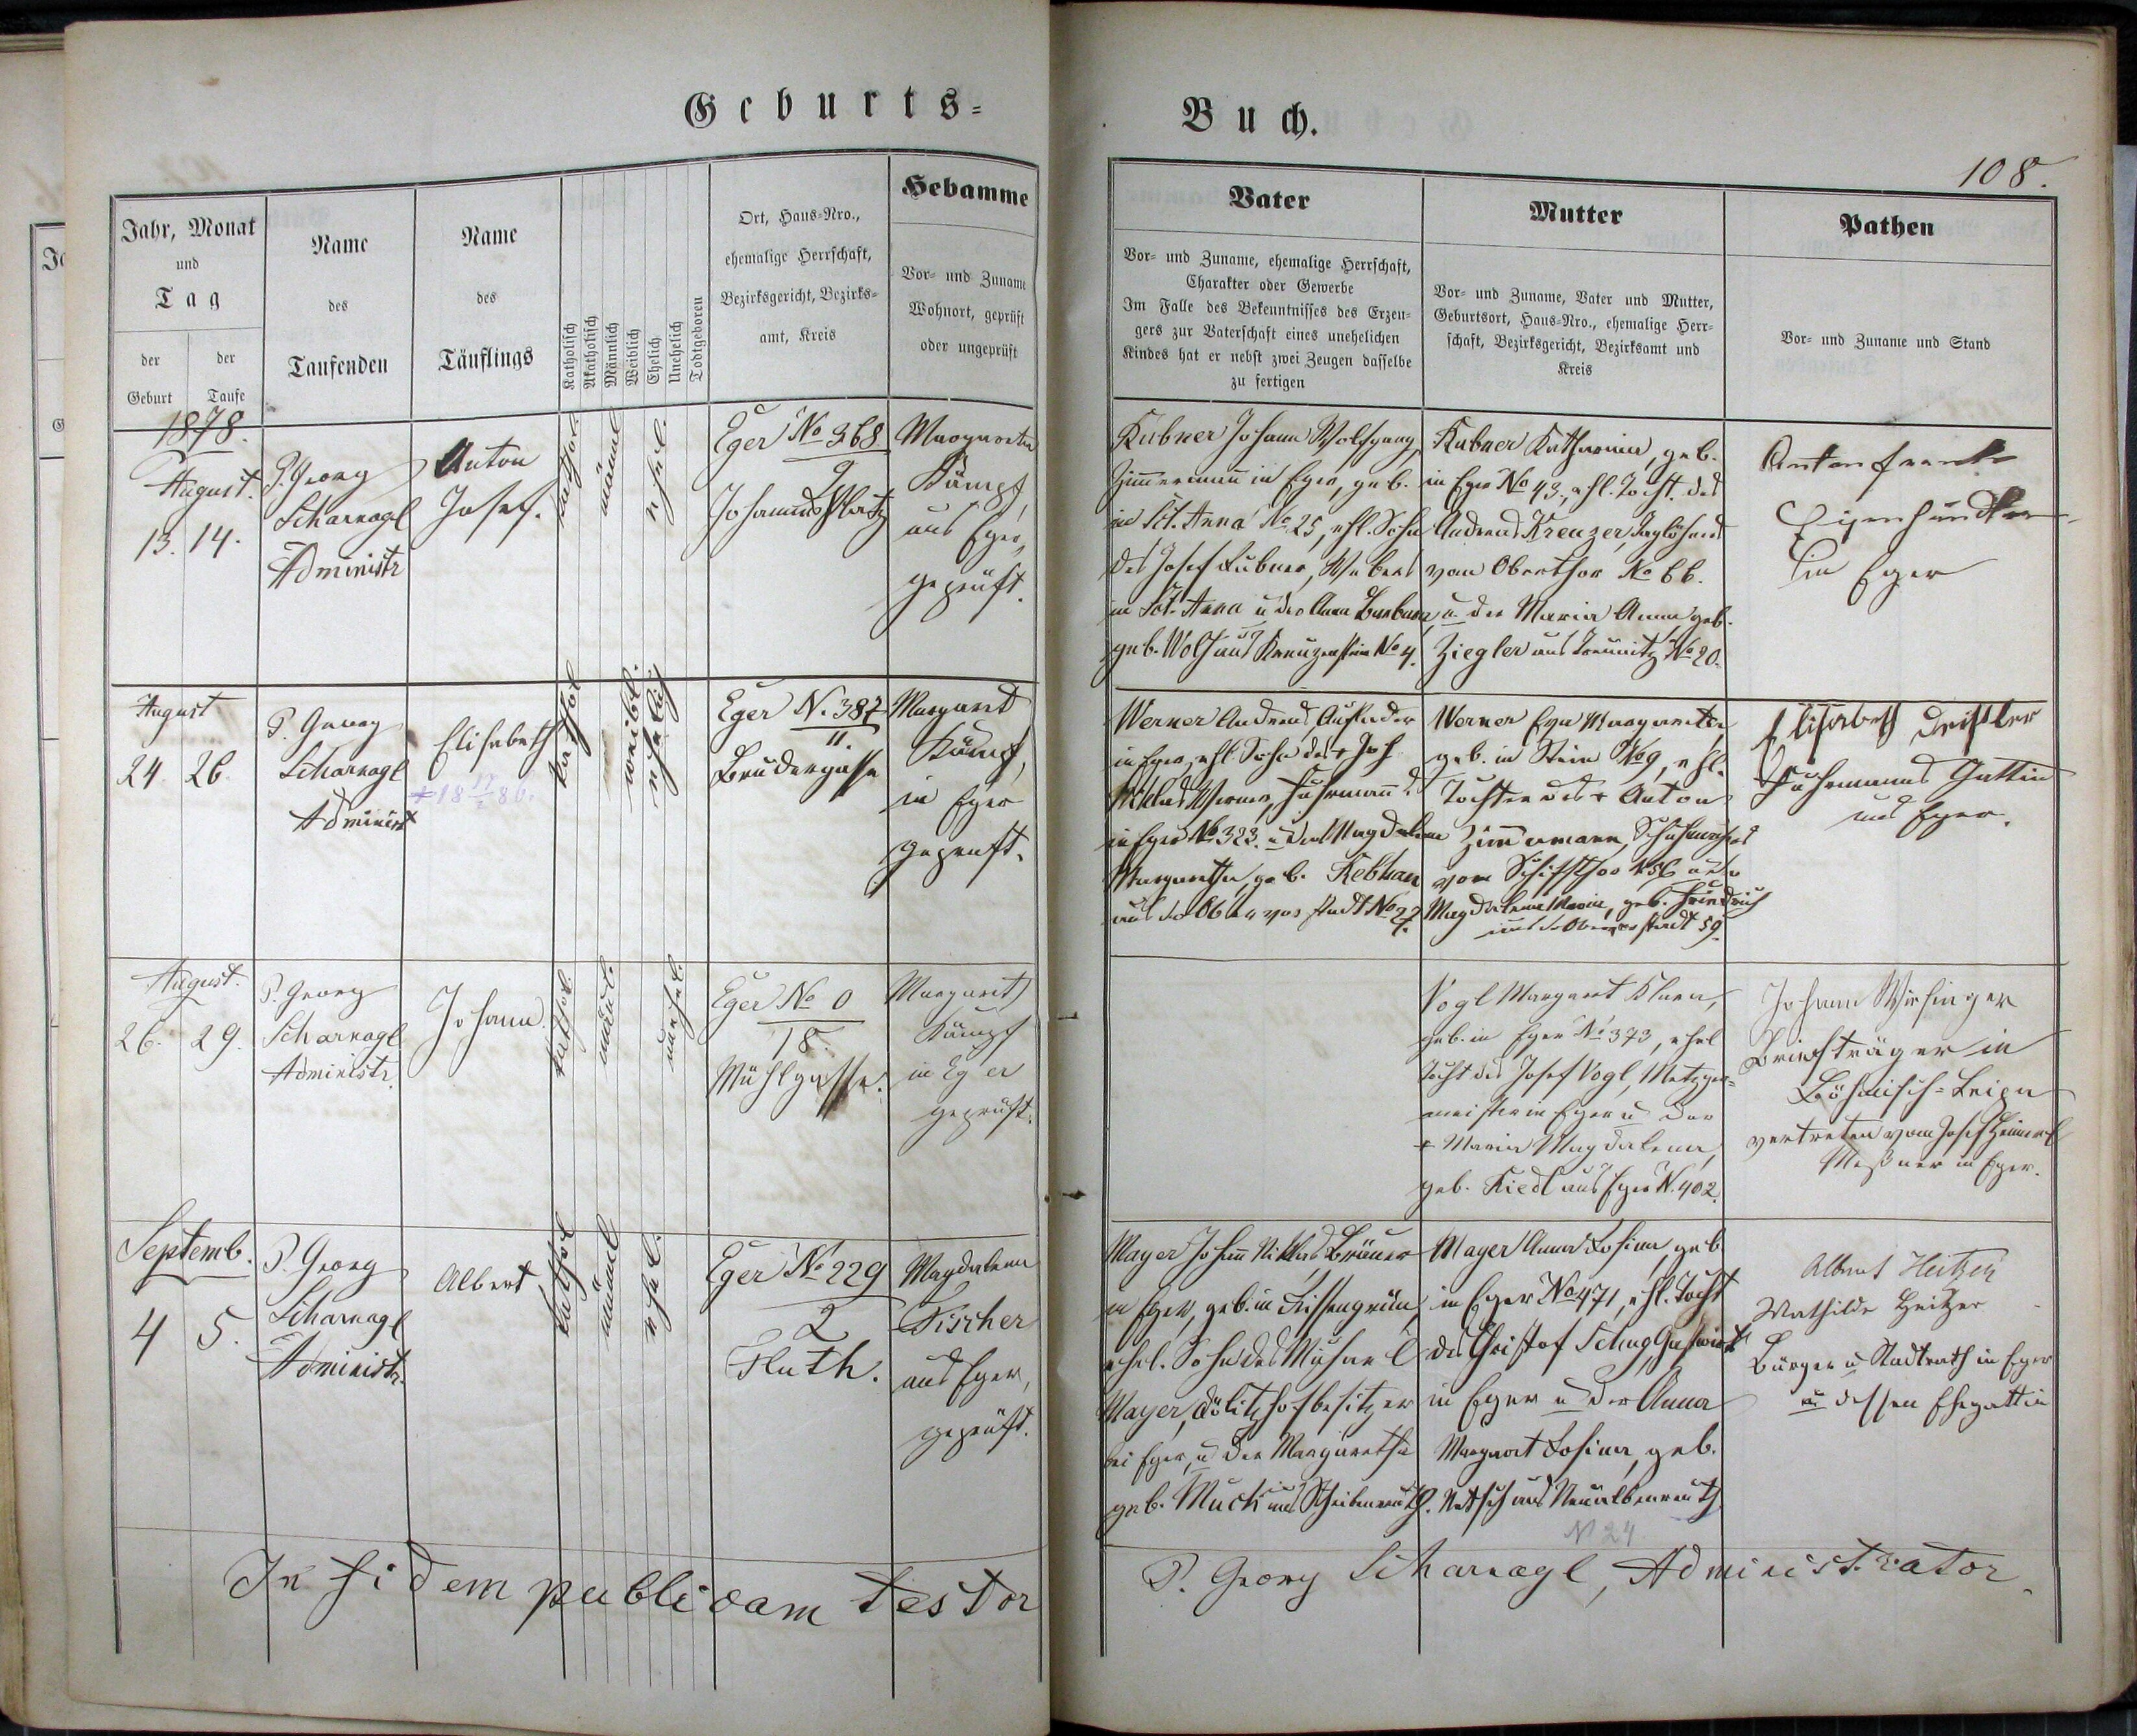 Geburts-
Buch.
108.
Jahr, Monat
und
Tag
der
Geburt
der
Taufe
Name
des
Taufenden
Name
des
Täuflings
Katholisch
Akatholisch
Männlich
Weiblich
Ehelich
Unehelich
Todtgeboren
Ort, Haus-Nro.,
ehemalige Herrschaft,
Bezirksgericht, Bezirks-
amt, Kreis
Hebamme
Vor- und Zuname
Wohnort, geprüft
oder ungeprüft
Vater
Vor- und Zuname, ehemalige Herrschaft,
Charakter oder Gewerbe
Im Falle des Bekenntnisses des Erzeu-
gers zur Vaterschaft eines unehelichen
Kindes hat er nebst zwei Zeugen dasselbe
zu fertigen
Mutter
Vor- und Zuname, Vater und Mutter,
Geburtsort, Haus-Nro., ehemalige Herr-
schaft, Bezirksgericht, Bezirksamt und
Kreis
Pathen
Vor- und Zuname und Stand
1878.
August.
13. 14.
P. Georg
Scharnagl
Administr
Anton
Josef.
kathol.
männl.
ehel.
Eger No 368
9
Johannesplatz
Margaretha
Kämpf,
aus Eger,
geprüft.
Kubner Johann Wolfgang,
Zimmermann in Eger, geb.
in Sct. Anna No 25, ehl. Sohn
des Josef Kubner, Webers
in Sct. Anna u der Anna Barbara
geb. Wolf aus Kreuzenstein No 4.
Kubner Katharina, geb.
in Eger No 43, ehl. Tocht. des
Andreas Kreuzer, Taglöhners
vom Oberthor No 66.
u. der Maria Anna geb.
Ziegler aus No 20.
Anton Frank
in Eger
August
24 26
P. Georg
Scharnagl
Administ
Elisabeth
kathol
weibl.
ehelich
Eger N. 387
11.
Brudergasse
Margaret
Kämpf,
in Eger
geprüft.
Werner Andreas, Aufleder
in Eger, ehl. Sohn des + Joh
Niklas Werner, Fuhrmann
in Eger No 323. u der Magdalena
Margaretha geb. Rebhan
aus der Obervorstadt No 27.
Werner Eva Margaretha
geb. in Stein No 9, ehl.
Tochter des + Anton
Zimmermann, Schuhmachers
vom Schiffthor No 56 u der
Magdalena Maria, geb. Friedrich
aus d. Obervorstadt 59.
Elisabeth
Fuhrmanns Gattin
aus Eger.
August.
26. 29.
P. Georg
Scharnagl
Administr.
Johann.
kathol.
männl.
unehel.
Eger No 0
18.
Mühlgasse.
Margaret
Kämpf
in Eger
geprüft.
Vogl Margaret Klara,
geb. in Eger No 373, ehel
Tocht des Josef Vogl, Metzger-
meister in Eger u der
+ Maria Magdalena,
geb. Riedl aus Eger N. 402.
Johann Wirsinger
Briefträger in
Böhmisch-Leipa
vertreten vom Josef
Meßner in Eger.
Septemb.
4 5.
P. Georg
Scharnagl
Administr.
Albert
kathol
männl
ehel.
Eger No 229
2
Rath.
Magdalena
Fischer
aus Eger,
geprüft.
Mayer Johann Niklas Bräuer
in Eger, geb. in
ehel. Sohn des Michael
Mayer, Dölitzhofbesitzer
bei Eger, u der Margaretha
geb. Muck aus Scheibenreuth 9.
Mayer Anna Rosina, geb.
in Eger No 471, ehl. Tocht
des Christof Schug Gastwirt
in Eger u der Anna
Margaret Rosina, geb.
Netsch aus Neualbenreuth
No 24
Albert Heitzer
Mathilde Heitzer
Bürger u Stadtrath in Eger
u dessen Ehegattin
In fidem publicam testor
P. Georg Scharnagl, Administrator.